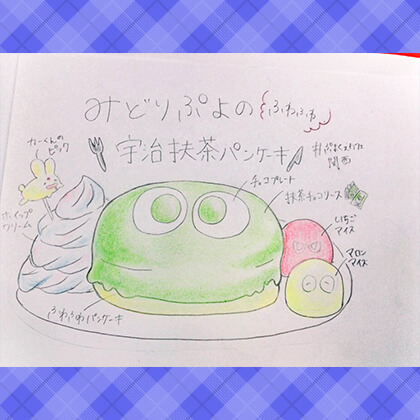 みどりぷよの
ふわふわ
宇治抹茶パンケーキ
関西
カーくんの
ピック
ホイップ
クリーム
チョコプレート
抹茶チョコソース
いちご
アイス
マロン
アイス
ふわふわパンケーキ